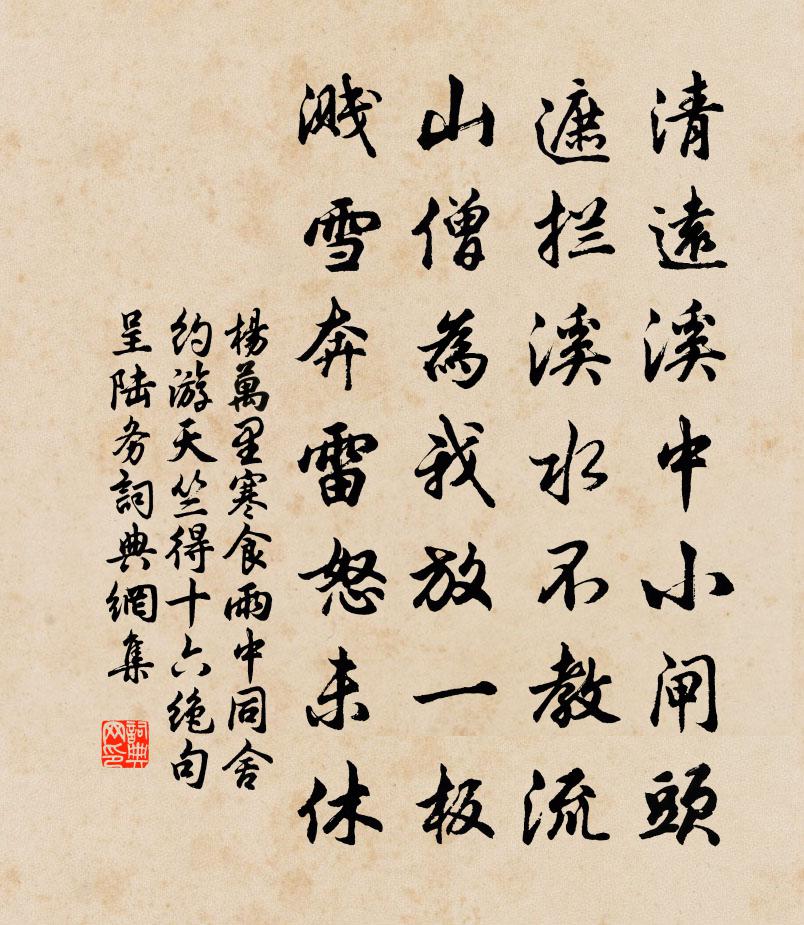 清遠溪中小闸頭
遮拦溪水不教流
山僧為我放一板
溅雪奔雷怒未休
楊萬里寒食雨中同舍
约游天竺得十六绝句
呈陆务詞典網集
詞典
网印